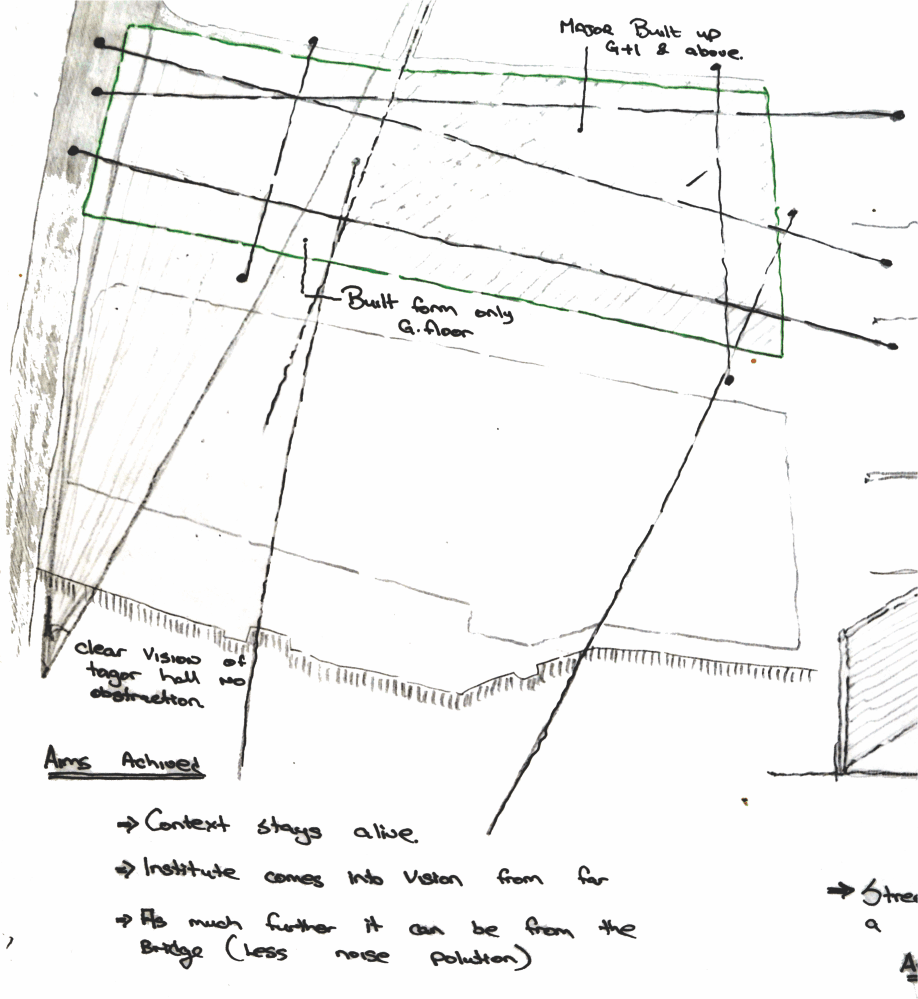 Major Built up
G+1 & above.
Built form only
G.floor
clear vision of
tagor hall no
obstraction
Aims Achived
→ Context stays alive.
→ Institute comes into vision from far
→ As much further it can be from the
Bridge (Less noise polution)
→ Stree
a
A